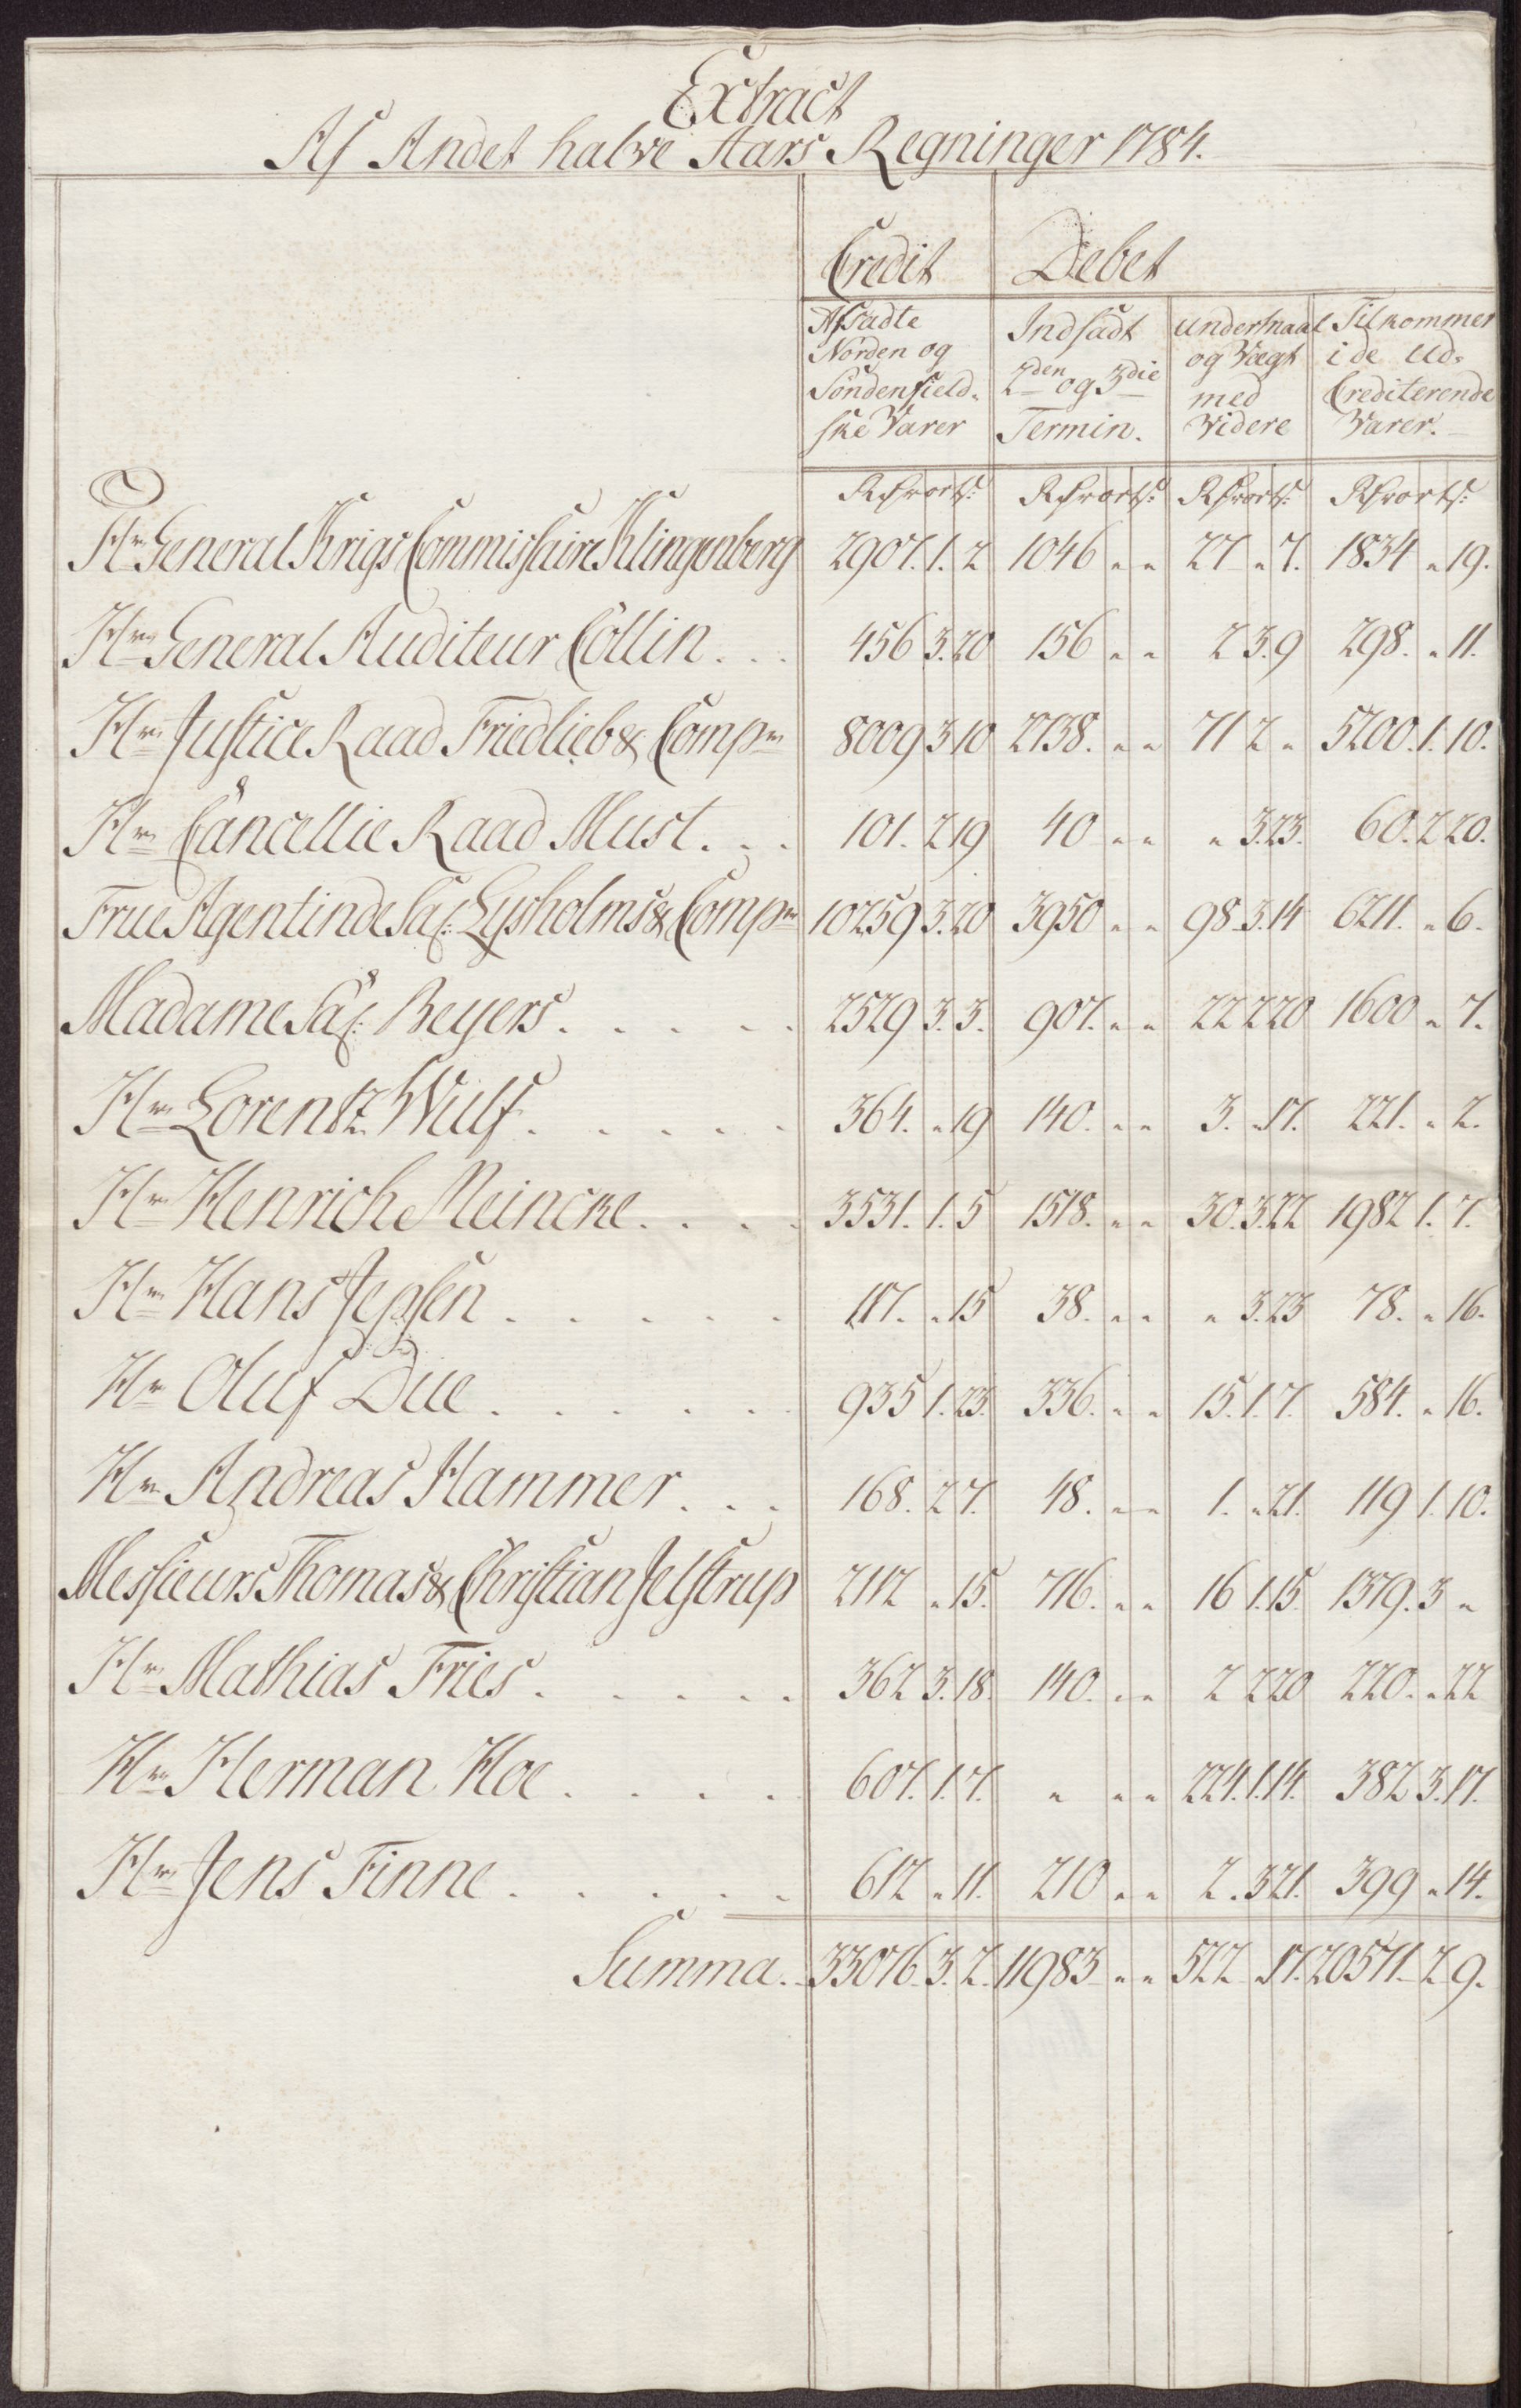 Extract
Af Andet halve Aars Regninger 1784.
Credit Debet
Afsadte Norden og Söndenfield- ske Varer
Indsadt 2den og 3die Termin.
Undermaal og Vægt med Videre
Tilkommer i de Ud- Crediterende Varer.
Rdr ort s: Rdr ort s: Rdr ort s: Rdr ort s:
Hr General Krigs Commissaire Klingenberg 2907. 1. 2 1046 " " 27 " 7. 1834 " 19.
Hr General Auditeur Collin . . . 456 3. 20 156 " " 2 3. 9 298. " 11.
Hr Justice Raad Friedlieb & Compn 8009 3 10 2738. " " 71 2 " 5200. 1. 10.
Hr Cancellie Raad Must . . . 101. 2 19 40 " " " 3. 23. 60. 2 20.
Frue Agentinde Sal: Lysholms & Compn 10259 3. 20 3950 " " 98 3. 14 6211. " 6.
Madame Sal: Beyers . . . . . 2529 3. 3. 907. " " 22 2 20 1600 " 7.
Hr Lorentz Wulf . . . . . 364. " 19 140. " " 3. " 17. 221. " 2.
Hr Henrich Meincke . . . . 3531. 1. 5 1518. " " 30. 3. 22 1982 1. 7.
Hr Hans Jepsen . . . . . 117. " 15 38. " " " 3. 23 78. " 16.
Hr Oluf Due . . . . . . 935 1. 23. 336. " " 15. 1. 7. 584. " 16.
Hr Andreas Hammer . . . 168. 2 7. 48. " " 1. " 21. 119 1. 10.
Messieurs Thomas & Christian Jelstrup 2112 " 15. 716. " " 16 1. 15. 1379. 3 "
Hr Mathias Fries . . . . . 362 3. 18. 140. " " 2 2 20 220. " 22
Hr Herman Hoe . . . . 607. 1. 7. " " " 224. 1. 14. 382 3. 17.
Hr Jens Finne . . . . . 612 " 11. 210 " " 2. 3 21. 399 " 14.
Summa. 33076. 3. 2. 11983 " " 522 " 17. 20571. 2 9.